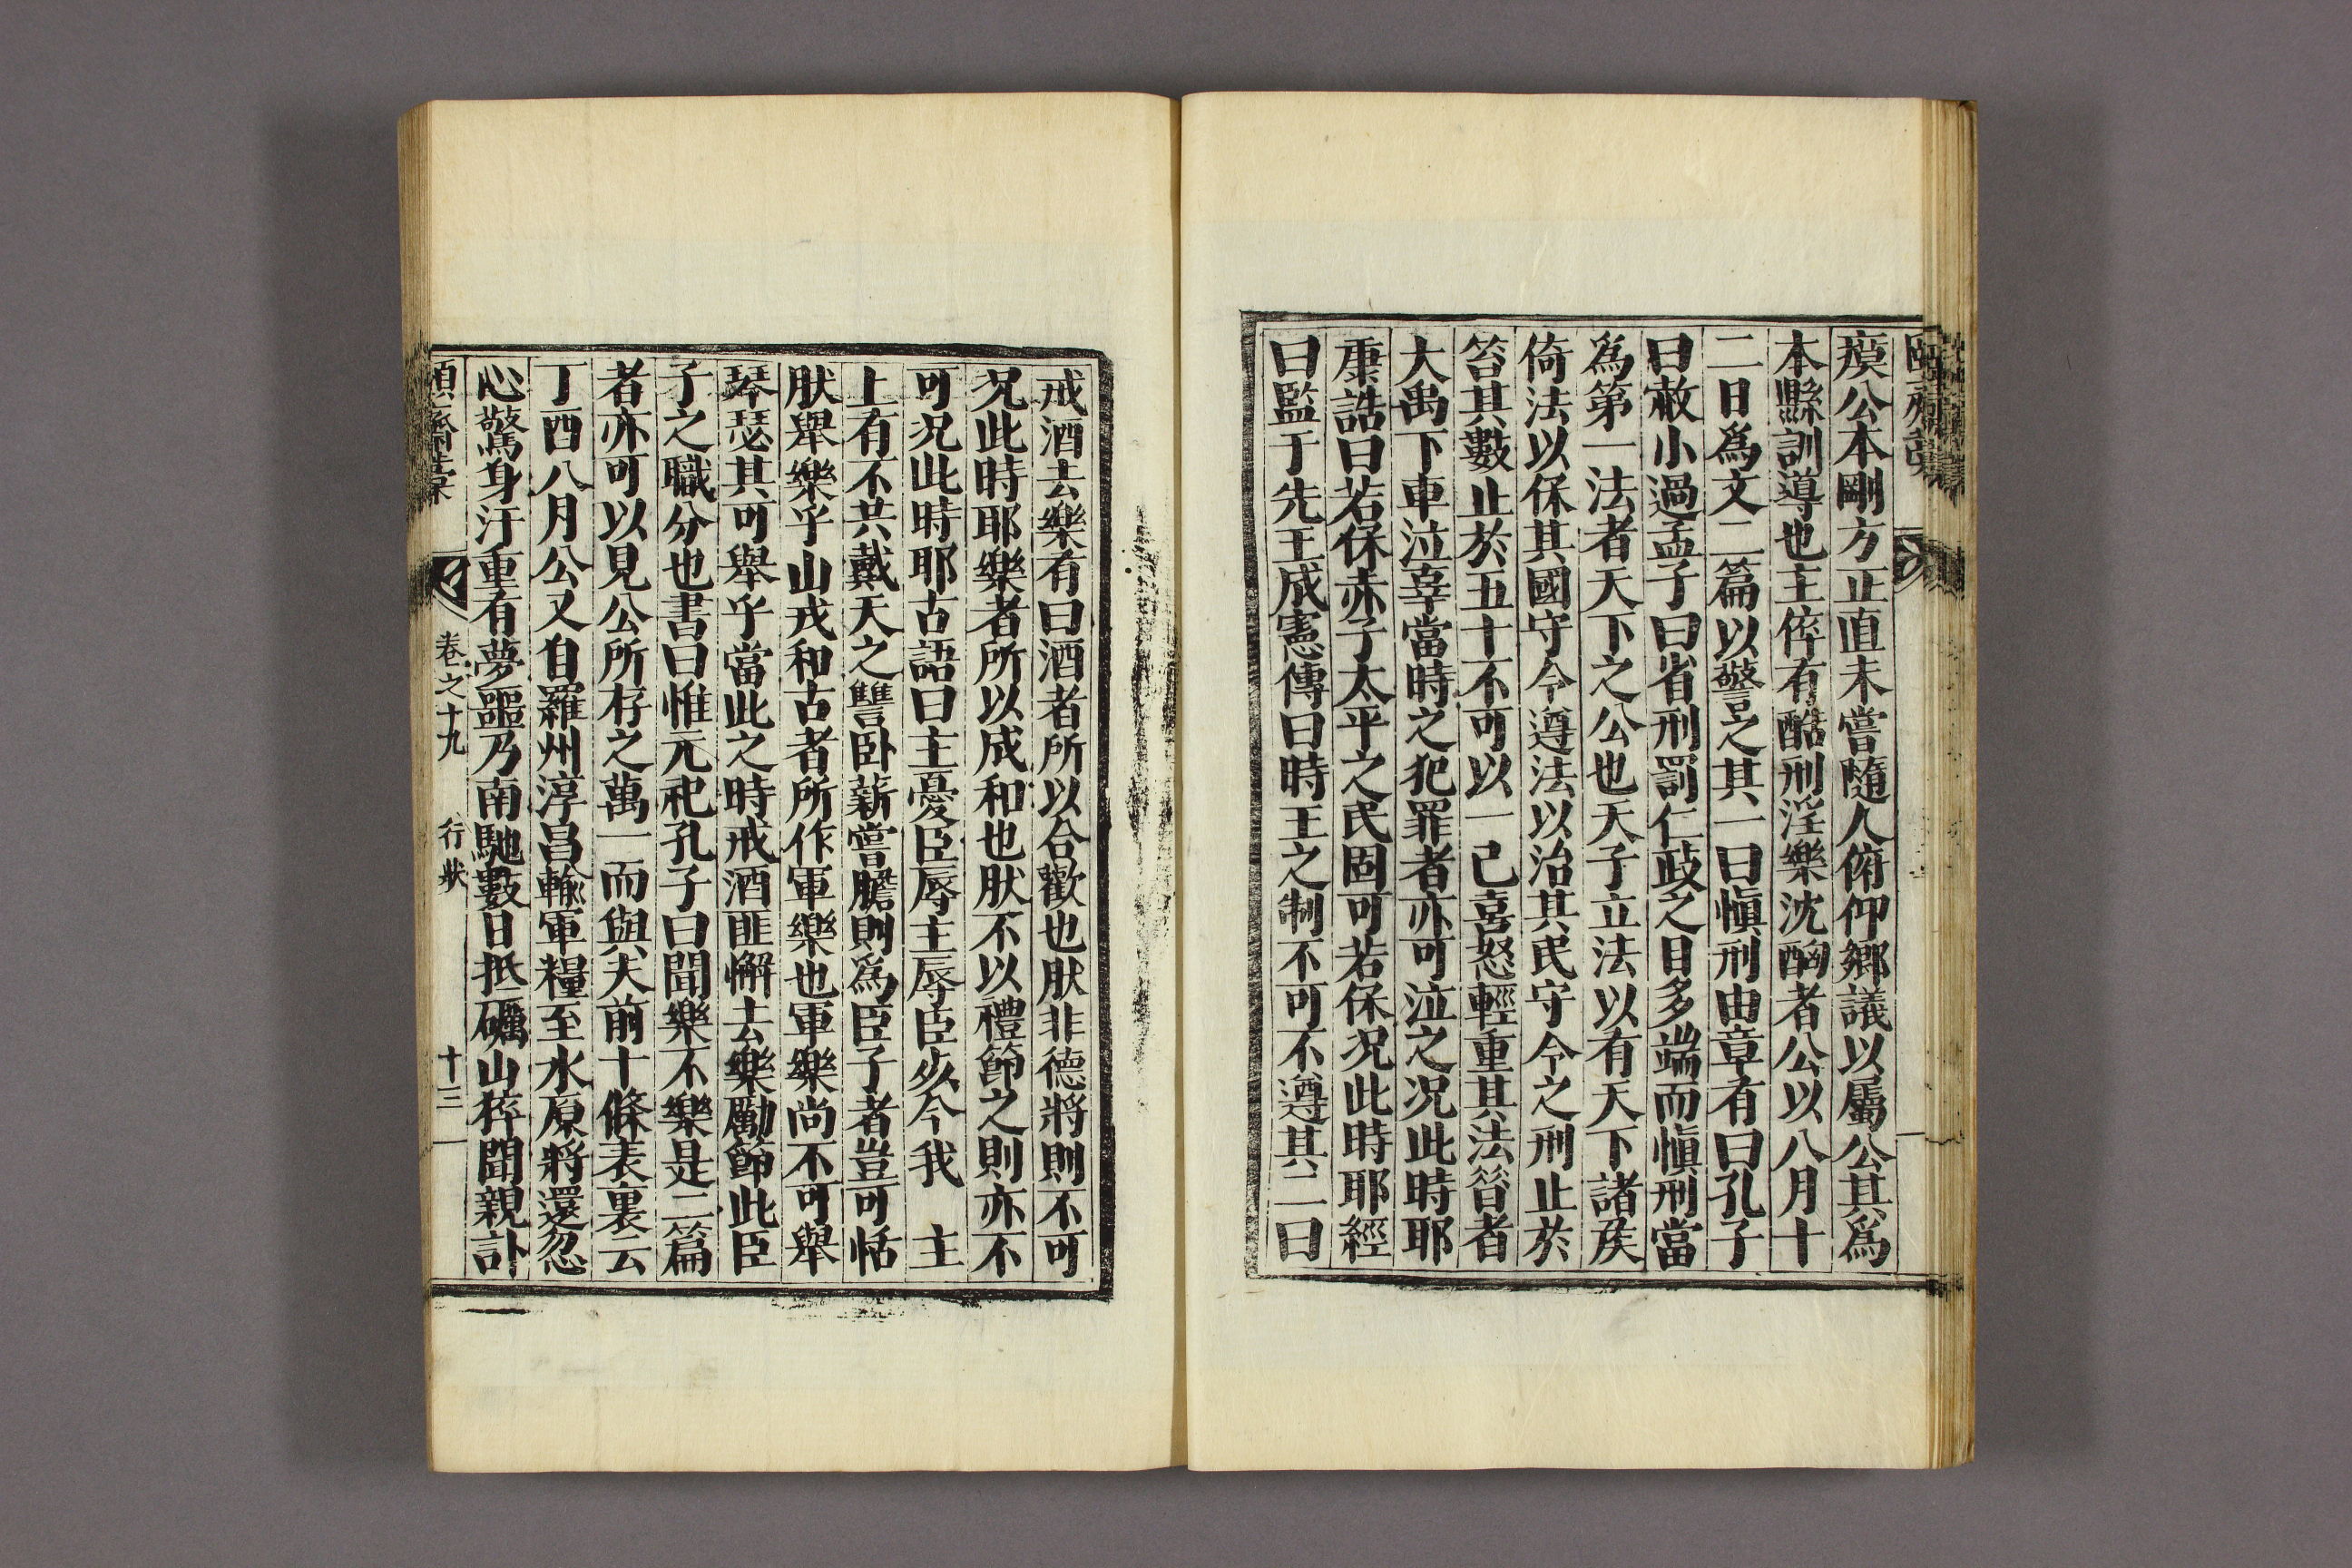 瘼公本剛方正直未嘗隨人俯仰鄉議以屬公其爲
本縣訓導也主倅有酷刑淫樂沈酗者公以八月十
二日爲文二篇以警之其一曰愼刑由章有曰孔子
曰赦小過孟子曰省刑罰仁政之目多端而愼刑當
爲第一法者天下之公也天子立法以有天下諸矦
倚法以保其國守令遵法以治其民守令之刑止於
笞其數止於五十不可以一己喜怒輕重其法昔者
大禹下車泣辜當時之犯罪者亦可泣之况此時耶
康誥曰若保赤子太平之民固可若保况此時耶經
曰監于先王成憲傳曰時王之制不可不遵其二曰
戒酒去樂有曰酒者所以合歡也肰非德將則不可
况此時耶樂者所以成和也肰不以禮節之則亦不
可况此時耶古語曰主憂臣辱主辱臣死今我 主
上有不共戴天之讐卧薪嘗膽則爲臣子者豈可恬
肰舉樂乎山戎和古者所作軍樂也軍樂尚不可舉
琴瑟其可舉乎當此之時戒酒匪懈去樂勵節此臣
子之職分也書曰惟元祀孔子曰聞樂不樂是二篇
者亦可以見公所存之萬一而與夫前十條表裏云
丁酉八月公又自羅州淳昌輸軍糧至水原將還忽
心驚身汗重有夢噩乃南馳數日抵礪山猝聞親訃
卷之十九 行狀 十三